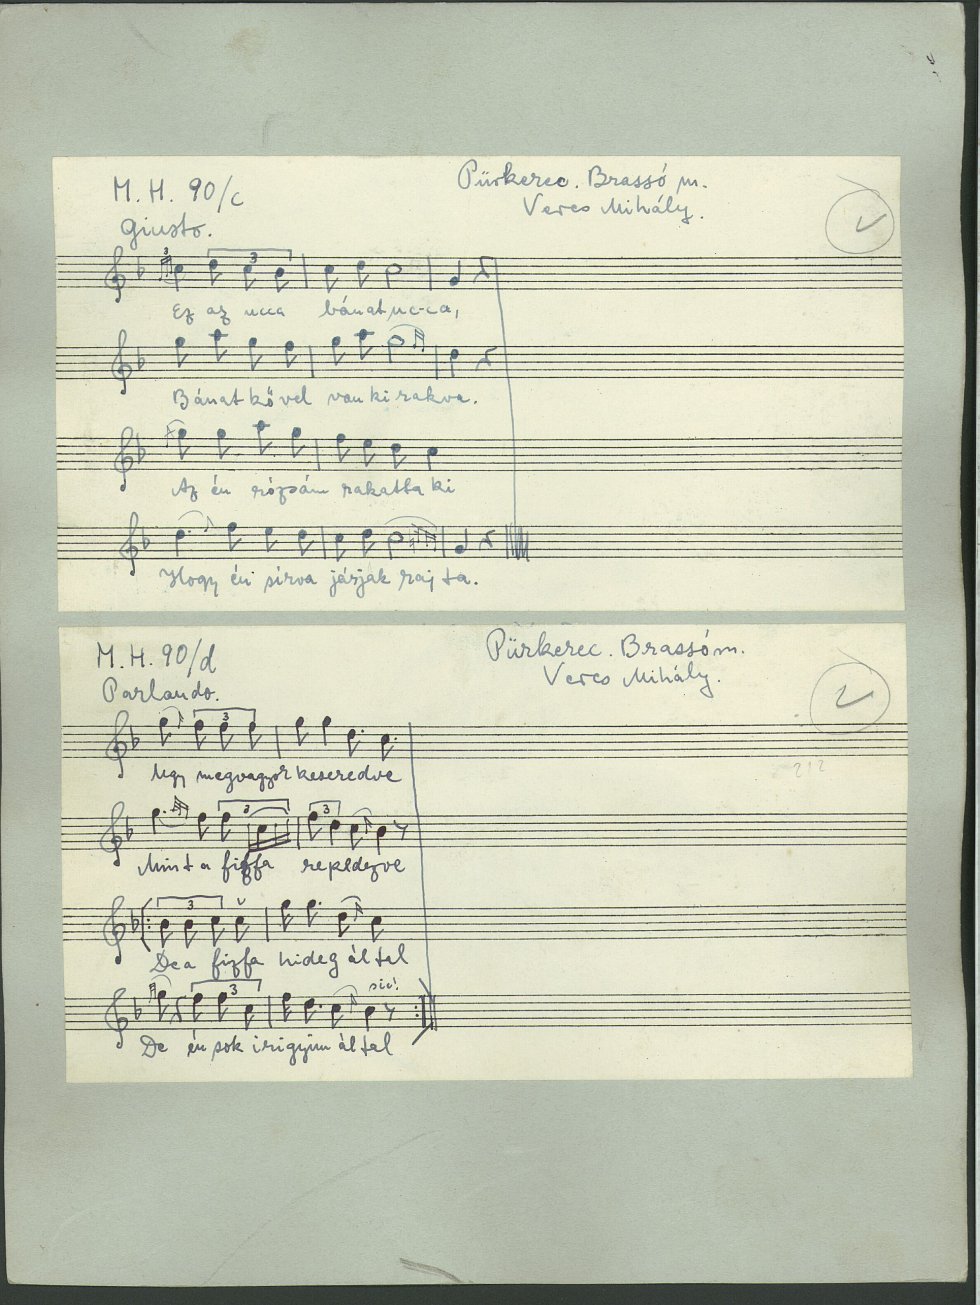 M. H. 90/c
Pürkerec. Brassó m.
Veres Mihály.
Giusto.
3
3
Ez az ucca bánat uc-ca,
Bánat kővel van ki rakva.
Az én rózsám rakatta ki
Hogy én sírva járjak raj ta.
M. H. 90/d
Pürkerec. Brassó m.
Veres Mihály.
Parlando.
3
Ugy megvagyok keseredve
3
3
Mint a fizfa repedezve
3
De a fizfa hideg ál tal
3
sic!
De én sok irigyim ál tal